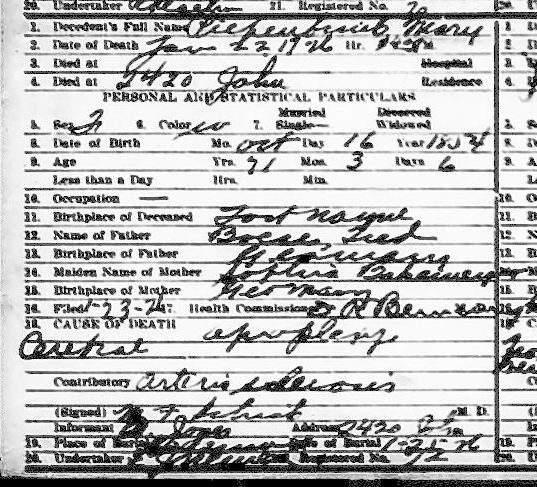 20. Undertaker 21. Registered No.
1. Decedent's Full Name Piepenbrink Mary
2. Date of Death Jan 22 1926 Hr.
3. Died at Hospital
4. Died at 2420 John Residence
PERSONAL AND STATISTICAL PARTICULARS
5. Sex F 6. Color w 7. Single Married Widowed Divorced
8. Date of Birth Mo. Oct Day 16 Year 1854
9. Age Yrs. 71 Mos. 3 Days 6
Less than a Day Hrs. Min.
10. Occupation —
11. Birthplace of Deceased Fort Wayne
12. Name of Father Boese, Fred
13. Birthplace of Father Germany
14. Maiden Name of Mother Sophia
15. Birthplace of Mother Germany
16. Filed 1-23-26 17. Health Commissioner
18. CAUSE OF DEATH apoplexy
Cerebral
Contributory Arterio sclerosis
(Signed) M. D.
Informant Address 2420
19. Place of Burial Date of Burial 1-25-26
20. Undertaker Registered No. 72